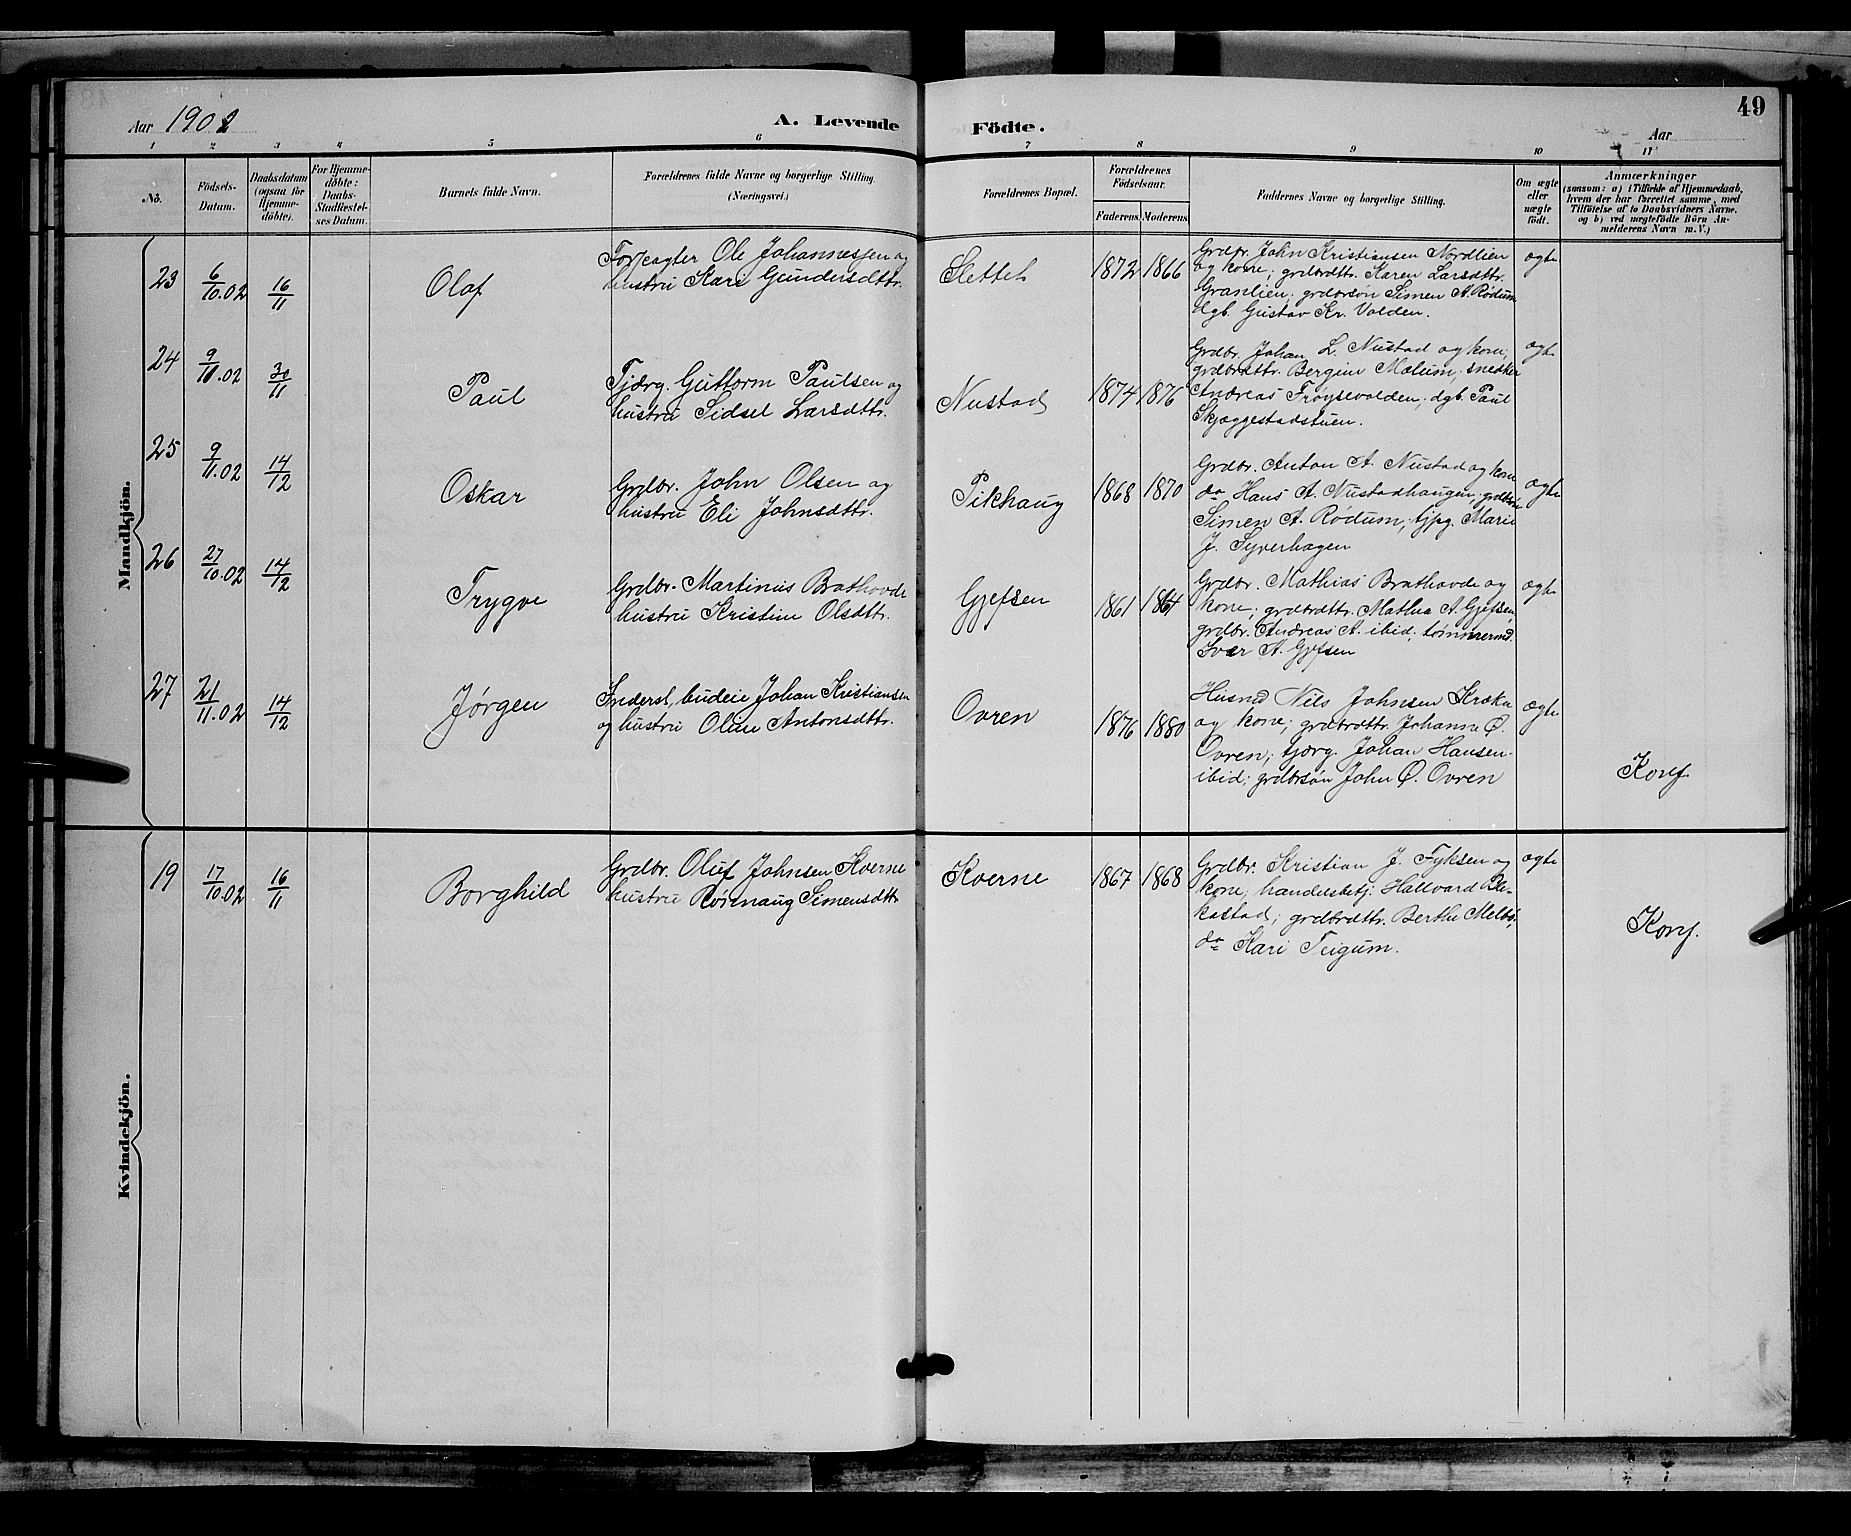 49
Aar 1902
A. Levende Födte.
Aar
1 2 3 4 5 6 7 8 9 10 11
No.
Födsels-Datum.
Daabsdatum (ogsaa for Hjemme-döbte).
For Hjemme-döbte: Daabs-Stadfæstel-ses Datum.
Barnets fulde Navn.
Forældrenes fulde Navne og borgerlige Stilling. (Næringsvei.)
Forældrenes Bopæl.
Forældrenes Födselsaar.
Faderens Moderens
Faddernes Navne og borgerlige Stilling.
Om ægte eller uægte födt.
Anmærkninger
(saasom: a) i Tilfælde af Hjemmedaab,
hvem der har forrettet samme, med
Tilföielse af to Daabsvidners Navne,
og b) ved uægtefödte Börn An-
melderens Navn m. V.)
Mandkjön.
23 6/10.02 16/11 Olaf
Forpagter Ole Johannessen og
hustru Kari Gundersdttr.
Slettet 1872 1866
Grdbr. John Kristiansen Nordlien
og kone; grdbrdttr. Karen Larsdttr.
Granlien; grdbrsøn Simen A. Rødum
dgb. Gustav Kr. Volden.
ægte
24 9/11.02 30/11 Paul
Tjærg. Guttorm Paulsen og
hustru Sidsel Larsdttr.
Nustad 1874 1876
Grdbr. Johan L. Nustad og kone;
grdbrdttr. Bergine Mælum, snedker
Andreas Frøysevolden; dgb. Paul
Skjæggestadstuen.
ægte
25 9/11.02 14/12 Oskar
Grdbr. John Olsen og
hustru Eli Johnsdttr.
Pikhaug 1868 1870
Grdbr. Anton A. Nustad og kone
do Hans A. Nustadhaugen; grdbrsøn
Simen A. Rødum, tjpg. Marie
J. Syverhagen
ægte
26 27/10.02 14/12 Trygve
Grdbr. Martinus Brathovde
hustru Kristine Olsdttr.
Gjefsen 1861 1864
Grdbr. Mathias Brathovde og
kone; grdbrdttr. Mathea A. Gjefsen,
grdbr. Andreas A. ibid; tømmermd.
Iver A. Gjefsen
ægte
27 21/11.02 14/12 Jørgen
Inderst, budeie Johan Kristiansen
og hustru Oline Antonsdttr.
Ovren 1876 1880
Husmd Nils Johnsen Kræke
og kone; grdbrdttr. Johanne Ø.
Ovren; tjærg. Johan Hansen
ibid; grdbrsøn John Ø. Ovren
ægte
Konf.
Kvindekjön.
19 17/10.02 16/11 Borghild
Grdbr. Oluf Johnsen Kverne
hustru Rønnaug Simensdttr
Kverne 1867 1868
Grdbr. Kristian J. Fyksen og
kone; handelsbetj. Hallvard Ble-
kastad; grdbrdttr. Berthe Melbø,
do Kari Teigum.
ægte
Konf.